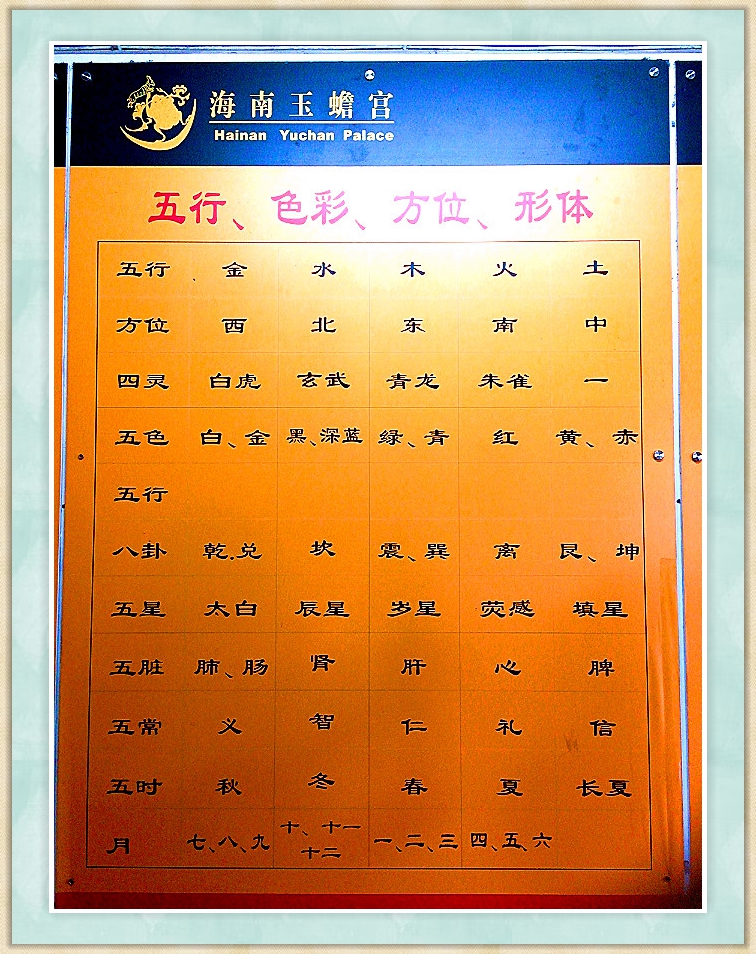 海南玉蟾宫
Hainan Yuchan Palace
五行、色彩、方位、形体
五行 金 水 木 火 土
方位 西 北 东 南 中
四灵 白虎 玄武 青龙 朱雀 一
五色 白、金 黑、深蓝 绿、青 红 黄、赤
五行
八卦 乾.兑 坎 震、巽 离 艮、坤
五星 太白 辰星 岁星 荧感 填星
五脏 肺、肠 肾 肝 心 脾
五常 义 智 仁 礼 信
五时 秋 冬 春 夏 长夏
月 七、八、九 十、十一 十二 一、二、三 四、五、六